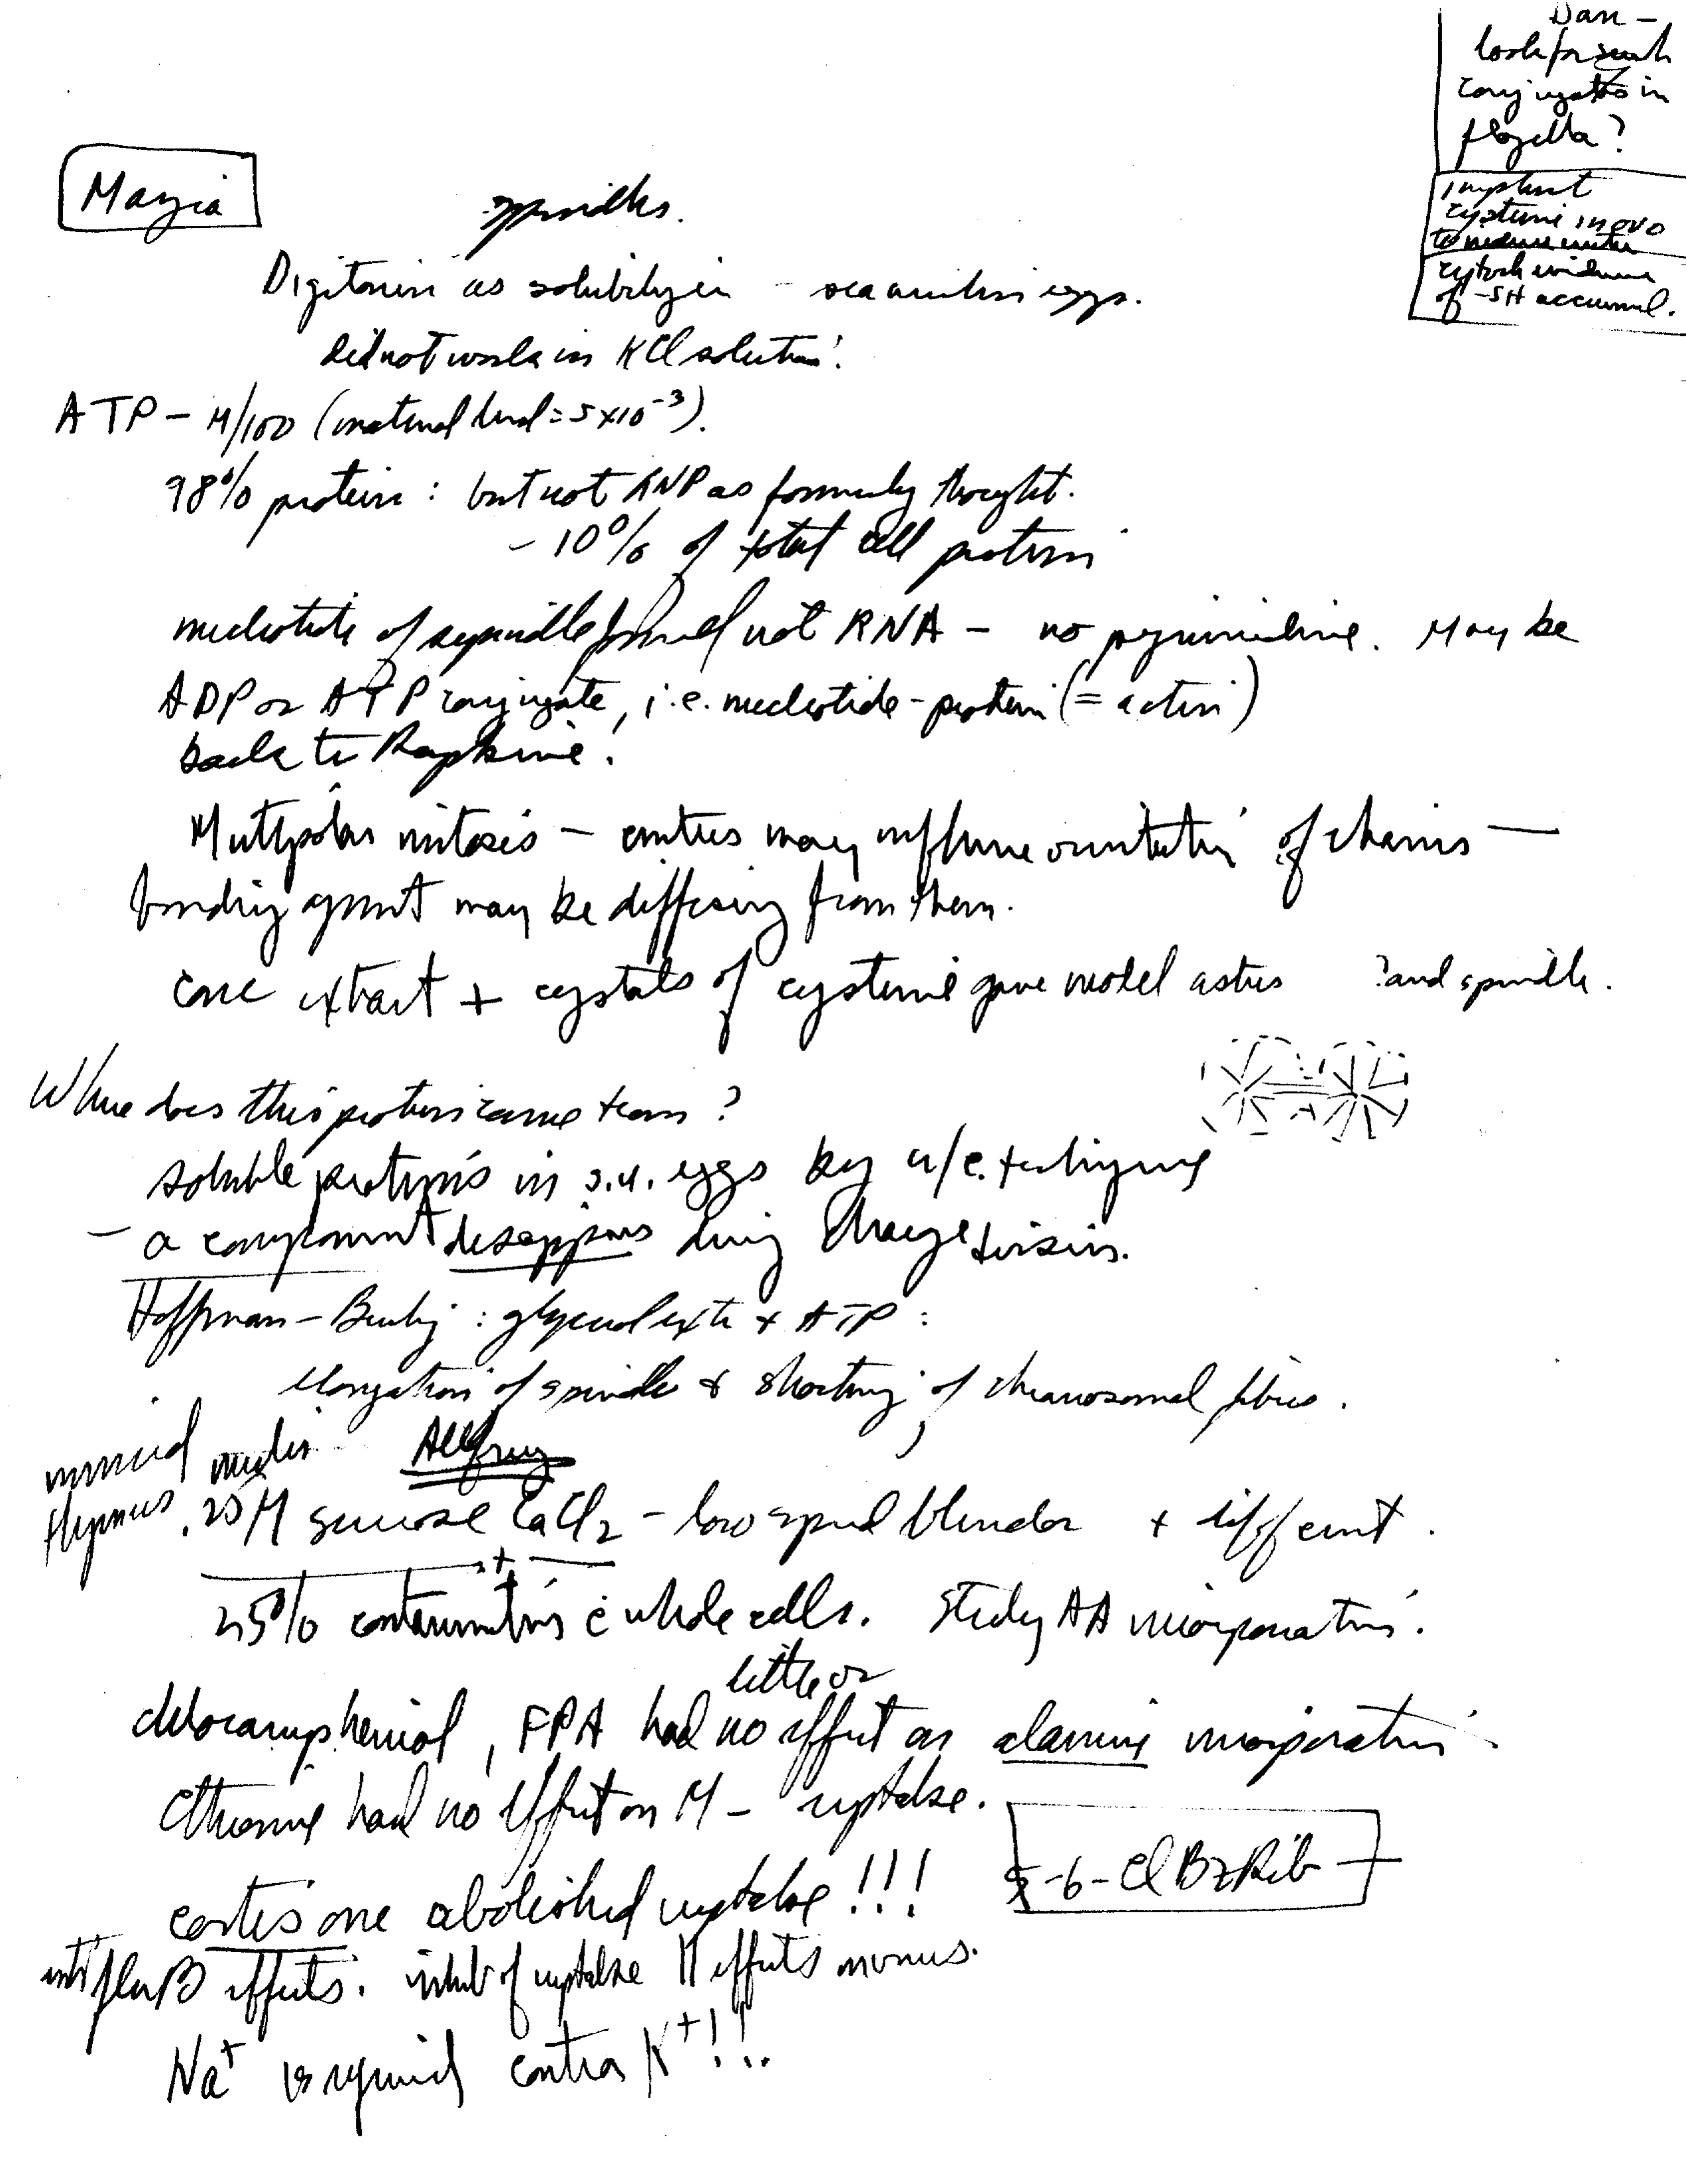 Dan –
look for such
conjugates in
flagella?
implant
cysteine in ovo
to reduce
cytoch evidence
of -SH accumul.
Mazia
spindles.
Digitonin as solubilizer – sea urchin eggs.
did not work in KCl solution!
ATP – M/100 (natural level = 5 x 10⁻³).
98% protein : but not RNP as formerly thought.
– 10% of total cell protein
nucleotide of spindle found not RNA – no pyrimidine. May be
ADP or ATP conjugate, i.e. nucleotide-protein (= actin)
back to Rapkine!
Multipolar mitosis – centres may influence orientation of chains —
bonding agent may be diffusing from them.
conc extract + crystals of cysteine gave model asters ? and spindle.
Where does this protein come from?
soluble proteins in s.u. eggs by u/c. technique
– a component disappears during cleavage division.
Hoffman-Berling : glycerol exts + ATP :
elongation of spindle & shorting of chromosomal fibres.
nuclei Allfrey
thymus .25 M sucrose CaCl₂ – low speed blender + diff cent.
25% contamination c̄ whole cells. Study AA incorporation.
little or
chloramphenicol, FPA had no effect on alanine incorporation.
Ethionine had no effect on M – uptake.
5-6-Cl BzRib
cortisone abolished uptake!!!
antifluB effects. inhib of uptake || effects on virus.
Na⁺ is required contra K⁺!!!